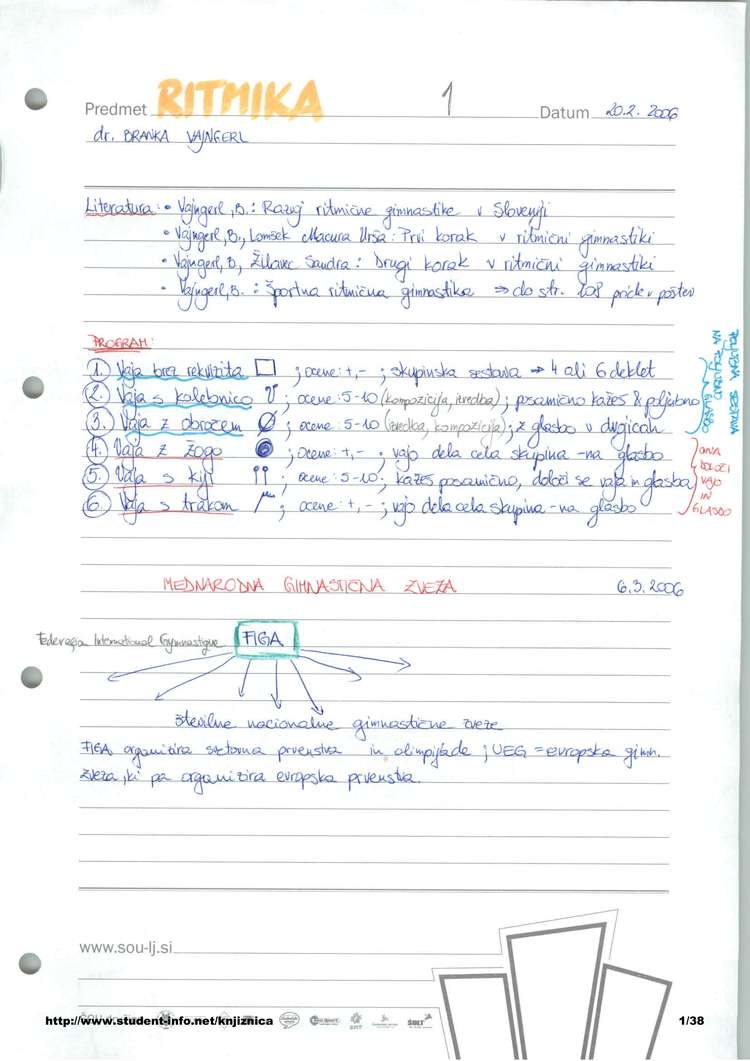 Predmet RITMIKA 1 Datum 20.2. 2006
dr. BRANKA VAJNGERL
Literatura: • Vajngerl, B.: Razvoj ritmične gimnastike v Sloveniji
• Vajngerl, B., Lomšek Macura Urša: Prvi korak v ritmični gimnastiki
• Vajngerl, B., Žilavec Sandra: Drugi korak v ritmični gimnastiki
• Vajngerl, B.: Športna ritmična gimnastika ⇒ do str. 108 pride v poštev
PROGRAM:
1. Vaja brez rekvizita ; ocene: +, - ; skupinska sestava → 4 ali 6 deklet
2. Vaja s kolebnico ; ocene: 5-10 (kompozicija, izvedba) ; posamično kažeš & poljubno
3. Vaja z obročem ; ocene: 5-10 (izvedba, kompozicija) ; z glasbo v dvojicah
POLJUBNA SESTAVA
NA POLJUBNO
GLASBO
4. Vaja z žogo ; ocene: +, - ; vajo dela cela skupina - na glasbo
5. Vaja s kiji ; ocene: 5-10 ; kažeš posamično, določi se vaja in glasba
6. Vaja s trakom ; ocene: +, - ; vajo dela cela skupina - na glasbo
ONA
DOLOČI
VAJO
IN
GLASBO
MEDNARODNA GIMNASTIČNA ZVEZA 6.3.2006
Federacija International Gymnastique FIGA
številne nacionalne gimnastične zveze
FIGA organizira svetovna prvenstva in olimpijade ; UEG = evropska gimn.
zveza, ki pa organizira evropska prvenstva.
www.sou-lj.si
http://www.student-info.net/knjiznica 1/38